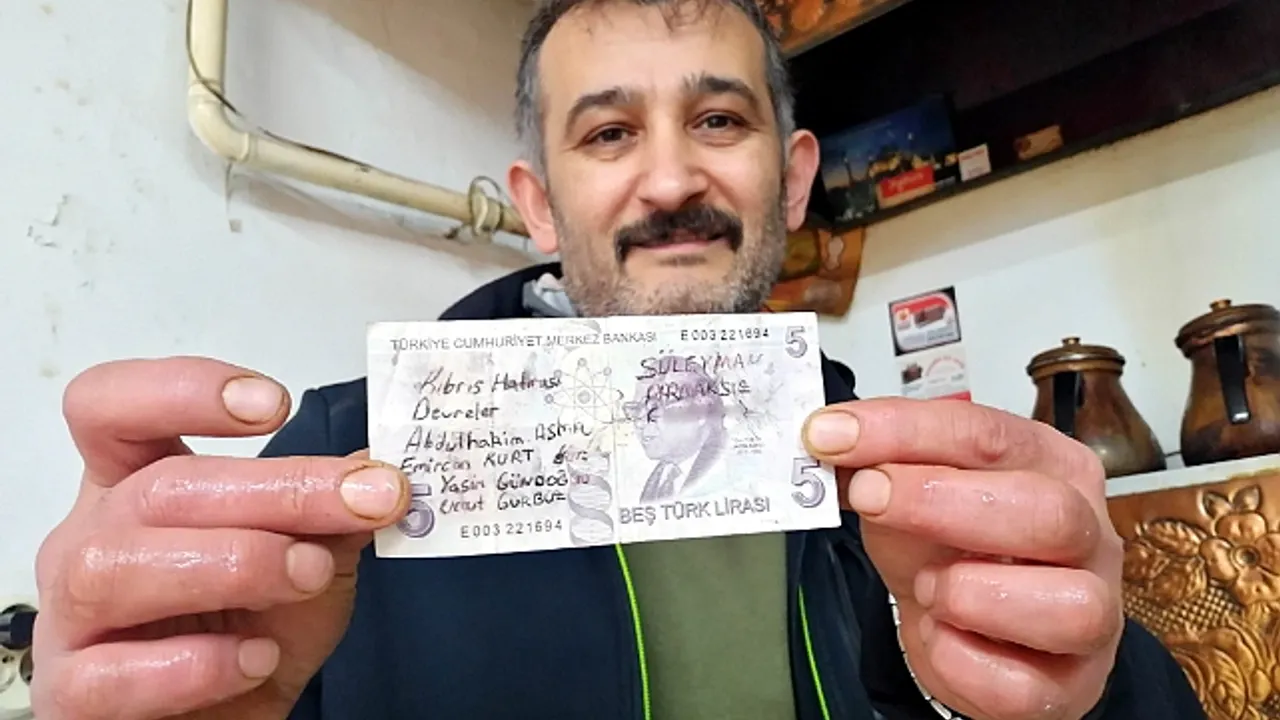 TÜRKİYE CUMHURİYET MERKEZ BANKASI E 003 221694 5
Kıbrıs Hatırası
Devreler
Abdulhakim
Emircan KURT
Yasin
Umut GÜRBÜZ
SÜLEYMAN
5 5
E 003 221694
BEŞ TÜRK LİRASI